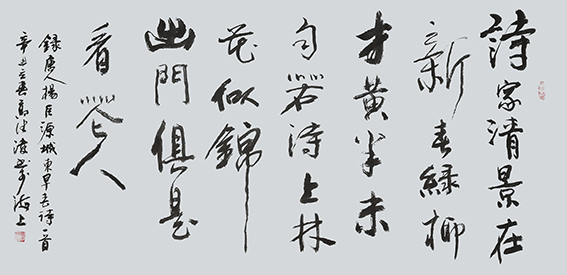 詩家清景在
新春綠柳
才黃半未
勻若待上林
花似錦
出門俱是
看花人
錄唐人楊巨源城東早春詩一首
辛丑立春海上